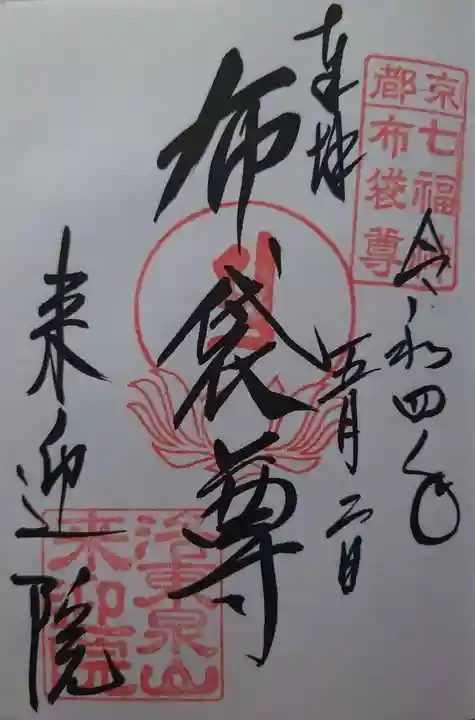 京都七福神
布袋尊
奉拝
令和四年
五月二日
布袋尊
来迎院
洛東泉山
来迎院